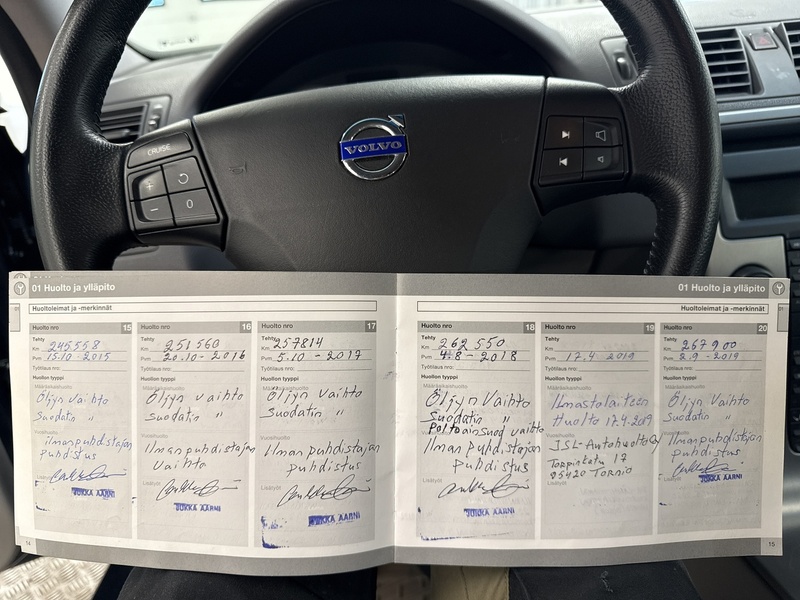 CRUISE
+
-
0
VOLVO
01 Huolto ja ylläpito
Huoltoleimat ja -merkinnät
Huolto nro 15
Tehty
Km 245558
Pvm 15.10 - 2015
Työtilaus nro:
Huollon tyyppi
Määräaikaishuolto
Öljyn vaihto
Suodatin "
Vuosihuolto
ilmanpuhdistajan
puhdistus
Lisätyöt
JUKKA AARNI
Huolto nro 16
Tehty
Km 251560
Pvm 20.10 - 2016
Työtilaus nro:
Huollon tyyppi
Määräaikaishuolto
Öljyn vaihto
Suodatin "
Vuosihuolto
Ilmanpuhdistajan
Vaihto
Lisätyöt
JUKKA AARNI
Huolto nro 17
Tehty
Km 257814
Pvm 5.10 - 2017
Työtilaus nro:
Huollon tyyppi
Määräaikaishuolto
Öljyn vaihto
Suodatin "
Vuosihuolto
Ilmanpuhdistajan
puhdistus
Lisätyöt
JUKKA AARNI
14
01 Huolto ja ylläpito
Huoltoleimat ja -merkinnät
Huolto nro 18
Tehty
Km 262550
Pvm 8 - 2018
Työtilaus nro:
Huollon tyyppi
Määräaikaishuolto
Öljyn Vaihto
Suodatin "
Poltoainsuod vaihto
Ilmanpuhdistajan
puhdistus
Lisätyöt
JUKKA AARNI
Huolto nro 19
Tehty
Km
Pvm 17.4 2019
Työtilaus nro:
Huollon tyyppi
Määräaikaishuolto
Ilmastolaiteen
Huolto 17.4.2019
Vuosihuolto
JSL-Autohuolto Oy
Torpinkatu 17
95420 Tornio
Lisätyöt
Huolto nro 20
Tehty
Km 267900
Pvm 2.9 - 2019
Työtilaus nro:
Huollon tyyppi
Määräaikaishuolto
Öljyn vaihto
Suodatin "
Vuosihuolto
Ilmanpuhdistajan
puhdistus
Lisätyöt
JUKKA AARNI
15